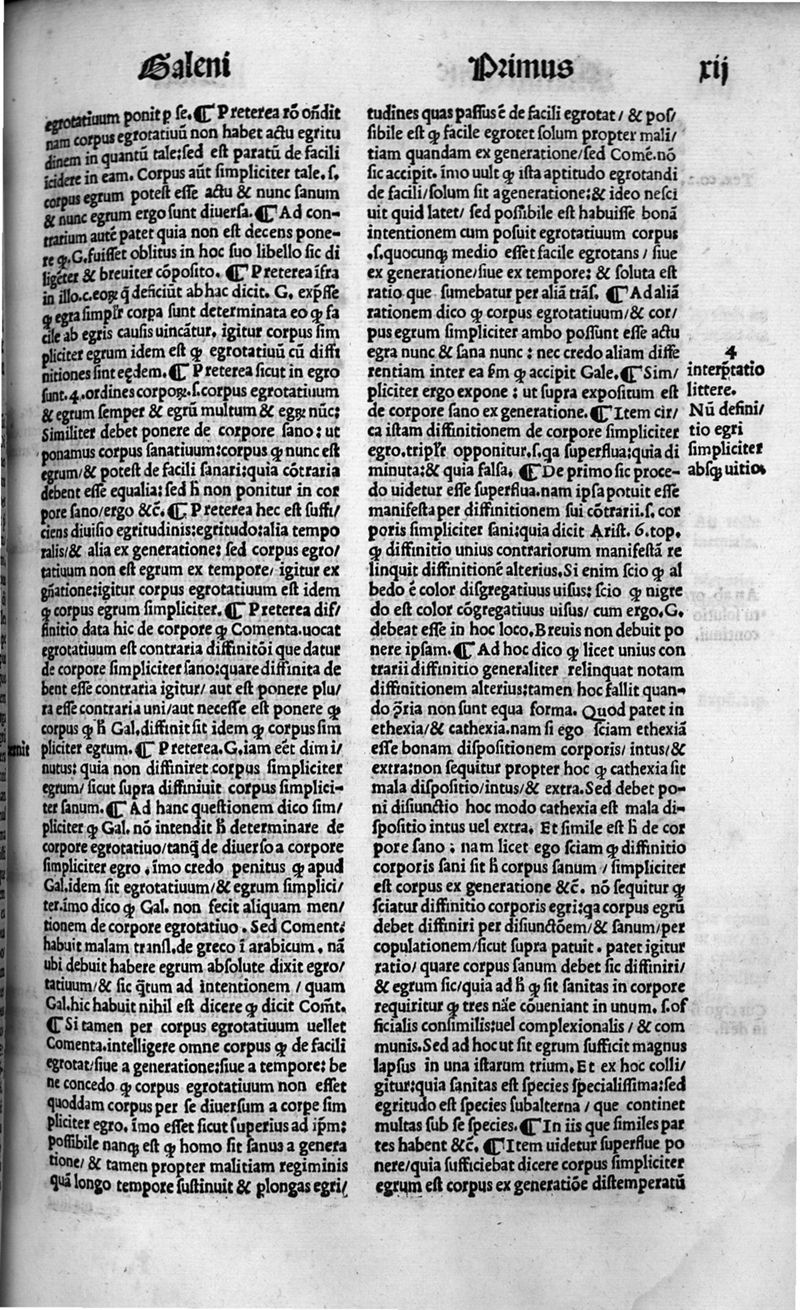 Galeni
Primus
xij
egrotatiuum ponit p se. ¶ Preterea rõ oñdit
nam corpus egrotatiuũ non habet actu egritu
dinem in quantũ tale: sed est paratũ de facili
icidere in eam. Corpus aũt simpliciter tale. s.
corpus egrum potest esse actu & nunc sanum
& nunc egrum ergo sunt diuersa. ¶ Ad con-
trarium autẽ patet quia non est decens pone-
re ꝙ. G. fuisset oblitus in hoc suo libello sic di
ligẽter & breuiter cõposito. ¶ Preterea ĩfra
in illo. c. eoꝝ q̃ deficiũt ab hac dicit. G. exp̃sse
ꝙ egra simplr̃ corpa sunt determinata eo ꝙ fa
cile ab egris causis uincãtur. igitur corpus sim
pliciter egrum idem est ꝙ egrotatiuũ cũ diffi
nitiones sint eędem. ¶ Preterea sicut in egro
sunt. 4. ordines corpoꝝ. s. corpus egrotatiuum
& egrum semper & egrũ multum & egꝝ nũc:
Similiter debet ponere de corpore sano: ut
ponamus corpus sanatiuum: corpus ꝙ nunc est
egrum/& potest de facili sanari: quia cõtraria
debent esse equalia: sed h̃ non ponitur in cor
pore sano/ergo &c̃. ¶ Preterea hec est suffi/
ciens diuisio egritudinis: egritudo: alia tempo
ralis/& alia ex generatione: sed corpus egro/
tatiuum non est egrum ex tempore/ igitur ex
gñatione: igitur corpus egrotatiuum est idem
ꝙ corpus egrum simpliciter. ¶ Preterea dif/
finitio data hic de corpore ꝙ Comenta. uocat
egrotatiuum est contraria diffinitõi que datur
de corpore simpliciter sano: quare diffinita de
bent esse contraria igitur/ aut est ponere plu/
ra esse contraria uni/aut necesse est ponere ꝙ
corpus ꝙ h̃ Gal. diffinit sit idem ꝙ corpus sim
pliciter egrum. ¶ Preterea. G. iam eẽt dimi/
nutus: quia non diffiniret corpus simpliciter
egrum/ sicut supra diffiniuit corpus simplici-
ter sanum. ¶ Ad hanc questionem dico sim/
pliciter ꝙ Gal. nõ intendit h̃ determinare de
corpore egrotatiuo/tanq̃ de diuerso a corpore
simpliciter egro. imo credo penitus ꝙ apud
Gal. idem sit egrotatiuum/& egrum simplici/
ter. imo dico ꝙ Gal. non fecit aliquam men/
tionem de corpore egrotatiuo. Sed Coment.
habuit malam transl. de greco ĩ arabicum. nã
ubi debuit habere egrum absolute dixit egro/
tatiuum/& sic q̃tum ad intentionem / quam
Gal. hic habuit nihil est dicere ꝙ dicit Com̃t.
¶ Si tamen per corpus egrotatiuum uellet
Comenta. intelligere omne corpus ꝙ de facili
egrotat/siue a generatione: siue a tempore: be
ne concedo ꝙ corpus egrotatiuum non esset
quoddam corpus per se diuersum a corpe sim
pliciter egro. imo esset sicut superius ad ip̃m:
possibile nanq; est ꝙ homo sit sanus a genera
tione/ & tamen propter malitiam regiminis
quã longo tempore sustinuit & plongas egri/
tudines quas passus ẽ de facili egrotat/ & pos/
sibile est ꝙ facile egrotet solum propter mali/
tiam quandam ex generatione/sed Comẽ. nõ
sic accipit. imo uult ꝙ ista aptitudo egrotandi
de facili/solum sit a generatione: & ideo nesci
uit quid latet/ sed possibile est habuisse bonã
intentionem cum posuit egrotatiuum corpus
.s. quocunq; medio esset facile egrotans / siue
ex generatione/siue ex tempore: & soluta est
ratio que sumebatur per aliã trãs. ¶ Ad aliã
rationem dico ꝙ corpus egrotatiuum/& cor/
pus egrum simpliciter ambo possunt esse actu
egra nunc & sana nunc: nec credo aliam diffe
rentiam inter ea fm ꝙ accipit Gale. ¶ Sim/
pliciter ergo expone: ut supra expositum est
de corpore sano ex generatione. ¶ Item cir/
ca istam diffinitionem de corpore simpliciter
egro. triplr̃ opponitur. s. qa superflua: quia di
minuta: & quia falsa. ¶ De primo sic proce-
do uidetur esse superflua. nam ipsa potuit esse
manifesta per diffinitionem sui cõtrarii. s. cor
poris simpliciter sani: quia dicit Arist. 6. top.
ꝙ diffinitio unius contrariorum manifestã re
linquit diffinitionẽ alterius. Si enim scio ꝙ al
bedo ẽ color disgregatiuus uisus: scio ꝙ nigre
do est color cõgregatiuus uisus/ cum ergo. G.
debeat esse in hoc loco. Breuis non debuit po
nere ipsam. ¶ Ad hoc dico ꝙ licet unius con
trarii diffinitio generaliter relinquat notam
diffinitionem alterius: tamen hoc fallit quan-
do p̃ria non sunt equa forma. Quod patet in
ethexia/& cathexia. nam si ego sciam ethexiã
esse bonam dispositionem corporis/ intus/&
extra: non sequitur propter hoc ꝙ cathexia sit
mala dispositio/intus/& extra. Sed debet po-
ni disiunctio hoc modo cathexia est mala di-
spositio intus uel extra. Et simile est h̃ de cor
pore sano : nam licet ego sciam ꝙ diffinitio
corporis sani sit h̃ corpus sanum / simpliciter
est corpus ex generatione &c̃. nõ sequitur ꝙ
sciatur diffinitio corporis egri: qa corpus egrũ
debet diffiniri per disiunctõem/& sanum/per
copulationem/sicut supra patuit. patet igitur
ratio/ quare corpus sanum debet sic diffiniri/
& egrum sic/quia ad h̃ ꝙ sit sanitas in corpore
requiritur ꝙ tres nãe cõueniant in unum. s. of
ficialis consimilis: uel complexionalis / & com
munis. Sed ad hoc ut sit egrum sufficit magnus
lapsus in una istarum trium. Et ex hoc colli/
gitur: quia sanitas est species specialissima: sed
egritudo est species subalterna / que continet
multas sub se species. ¶ In iis que similes par
tes habent &c̃. ¶ Item uidetur superflue po
nere/quia sufficiebat dicere corpus simpliciter
egrum est corpus ex generatiõe distemperatũ
4
interp̃tatio
littere.
Nũ defini/
tio egri
simpliciter
absq; uitio.